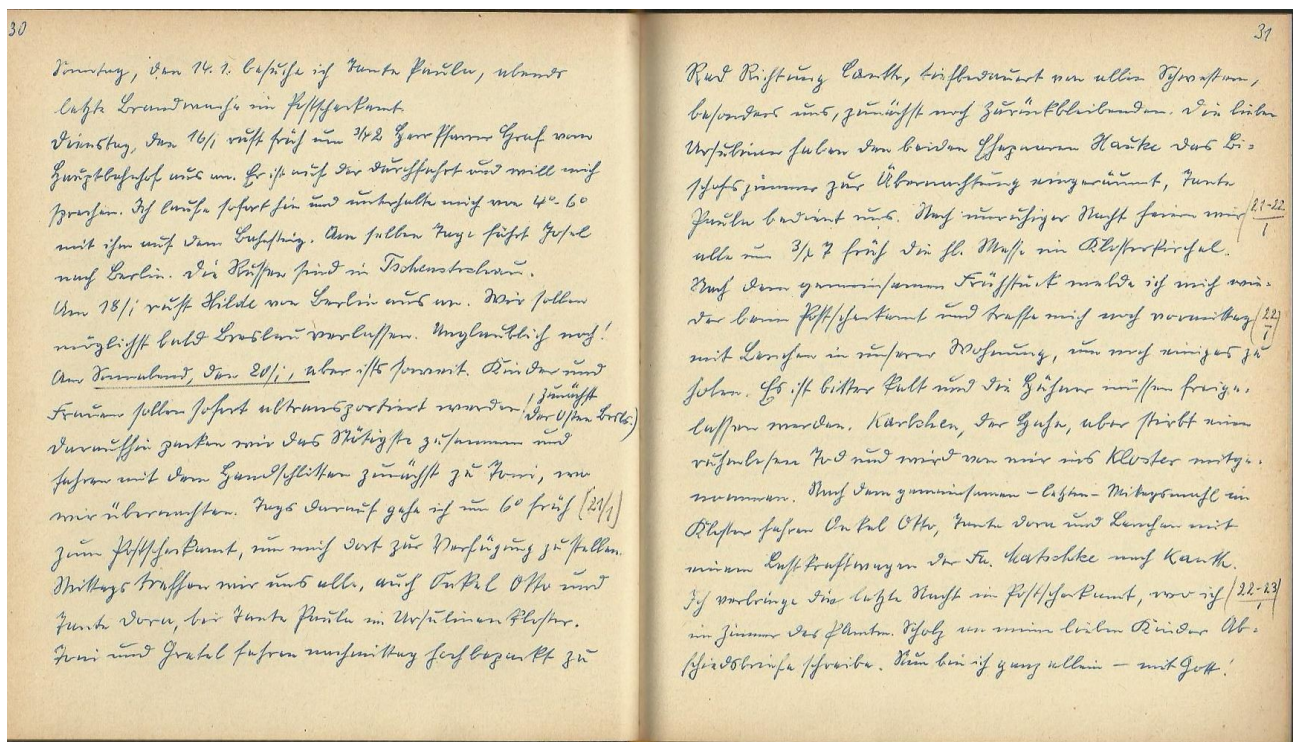 30
Sonntag, den 14.1. besuche ich Tante Paula, abends
letzte Brandwache im Postscheckamt.
Dienstag, den 16/1 ruft früh um 3/4 2 Herr Pfarrer Graf vom
Hauptbahnhof aus an. Er ist auf der Durchfahrt und will mich
sprechen. Ich laufe sofort hin und unterhalte mich von 4⁰-6⁰
mit ihm auf dem Bahnsteig. Am selben Tage fährt Josel
nach Berlin. Die Russen sind in Tschenstochau.
Am 18/1 ruft Hilde von Berlin aus an. Wir sollen
möglichst bald Breslau verlassen. Unglaublich noch!
Am Sonnabend, den 20/1, aber ists soweit. Kinder und
Frauen sollen sofort abtransportiert werden (zunächst
der Osten Bresls.)
Daraufhin packen wir das Nötigste zusammen und
fahren mit dem Handschlitten zunächst zu Toni, wo
wir übernachten. Tags darauf gehe ich um 6⁰ früh (21/1)
zum Postscheckamt, um mich dort zur Verfügung zu stellen.
Mittags treffen wir uns alle, auch Onkel Otto und
Tante Dora, bei Tante Paula im Ursulinenkloster.
Toni und Gretel fahren nachmittag hochbepackt zu
31
Rad Richtung Canth, tiefbedauert von allen Schwestern,
besonders uns, zunächst noch Zurückbleibenden. Die lieben
Ursulinen haben den beiden Ehepaaren Hauke das Bi=
schofszimmer zur Übernachtung eingeräumt, Tante
Paula bedient uns. Nach unruhiger Nacht feiern wir (21-22/1
alle um 3/4 7 früh die hl. Messe im Klosterkirchel.
Nach dem gemeinsamen Frühstück melde ich mich wie=
der beim Postscheckamt und treffe mich noch vormittag (22/1)
mit Lenchen in unserer Wohnung, um noch einiges zu
holen. Es ist bitter kalt und die Hühner müssen freige=
lassen werden. Karlchen, der Hahn, aber stirbt einen
ruhmlosen Tod und wird von mir ins Kloster mitge=
nommen. Nach dem gemeinsamen - letzten - Mittagsmahl im
Kloster fahren Onkel Otto, Tante Dora und Lenchen mit
einem Lastkraftwagen der Fa. Matschke nach Kanth.
Ich verbringe die letzte Nacht im Postscheckamt, wo ich (22-23/1)
im Zimmer des Scholz an meine lieben Kinder Ab=
schiedsbriefe schreibe. Nun bin ich ganz allein - mit Gott!